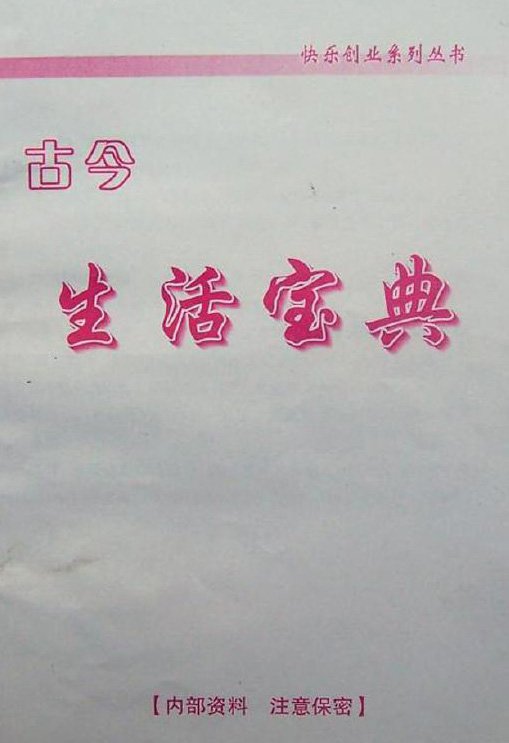 快乐创业系列丛书
古今
生活宝典
【内部资料　注意保密】